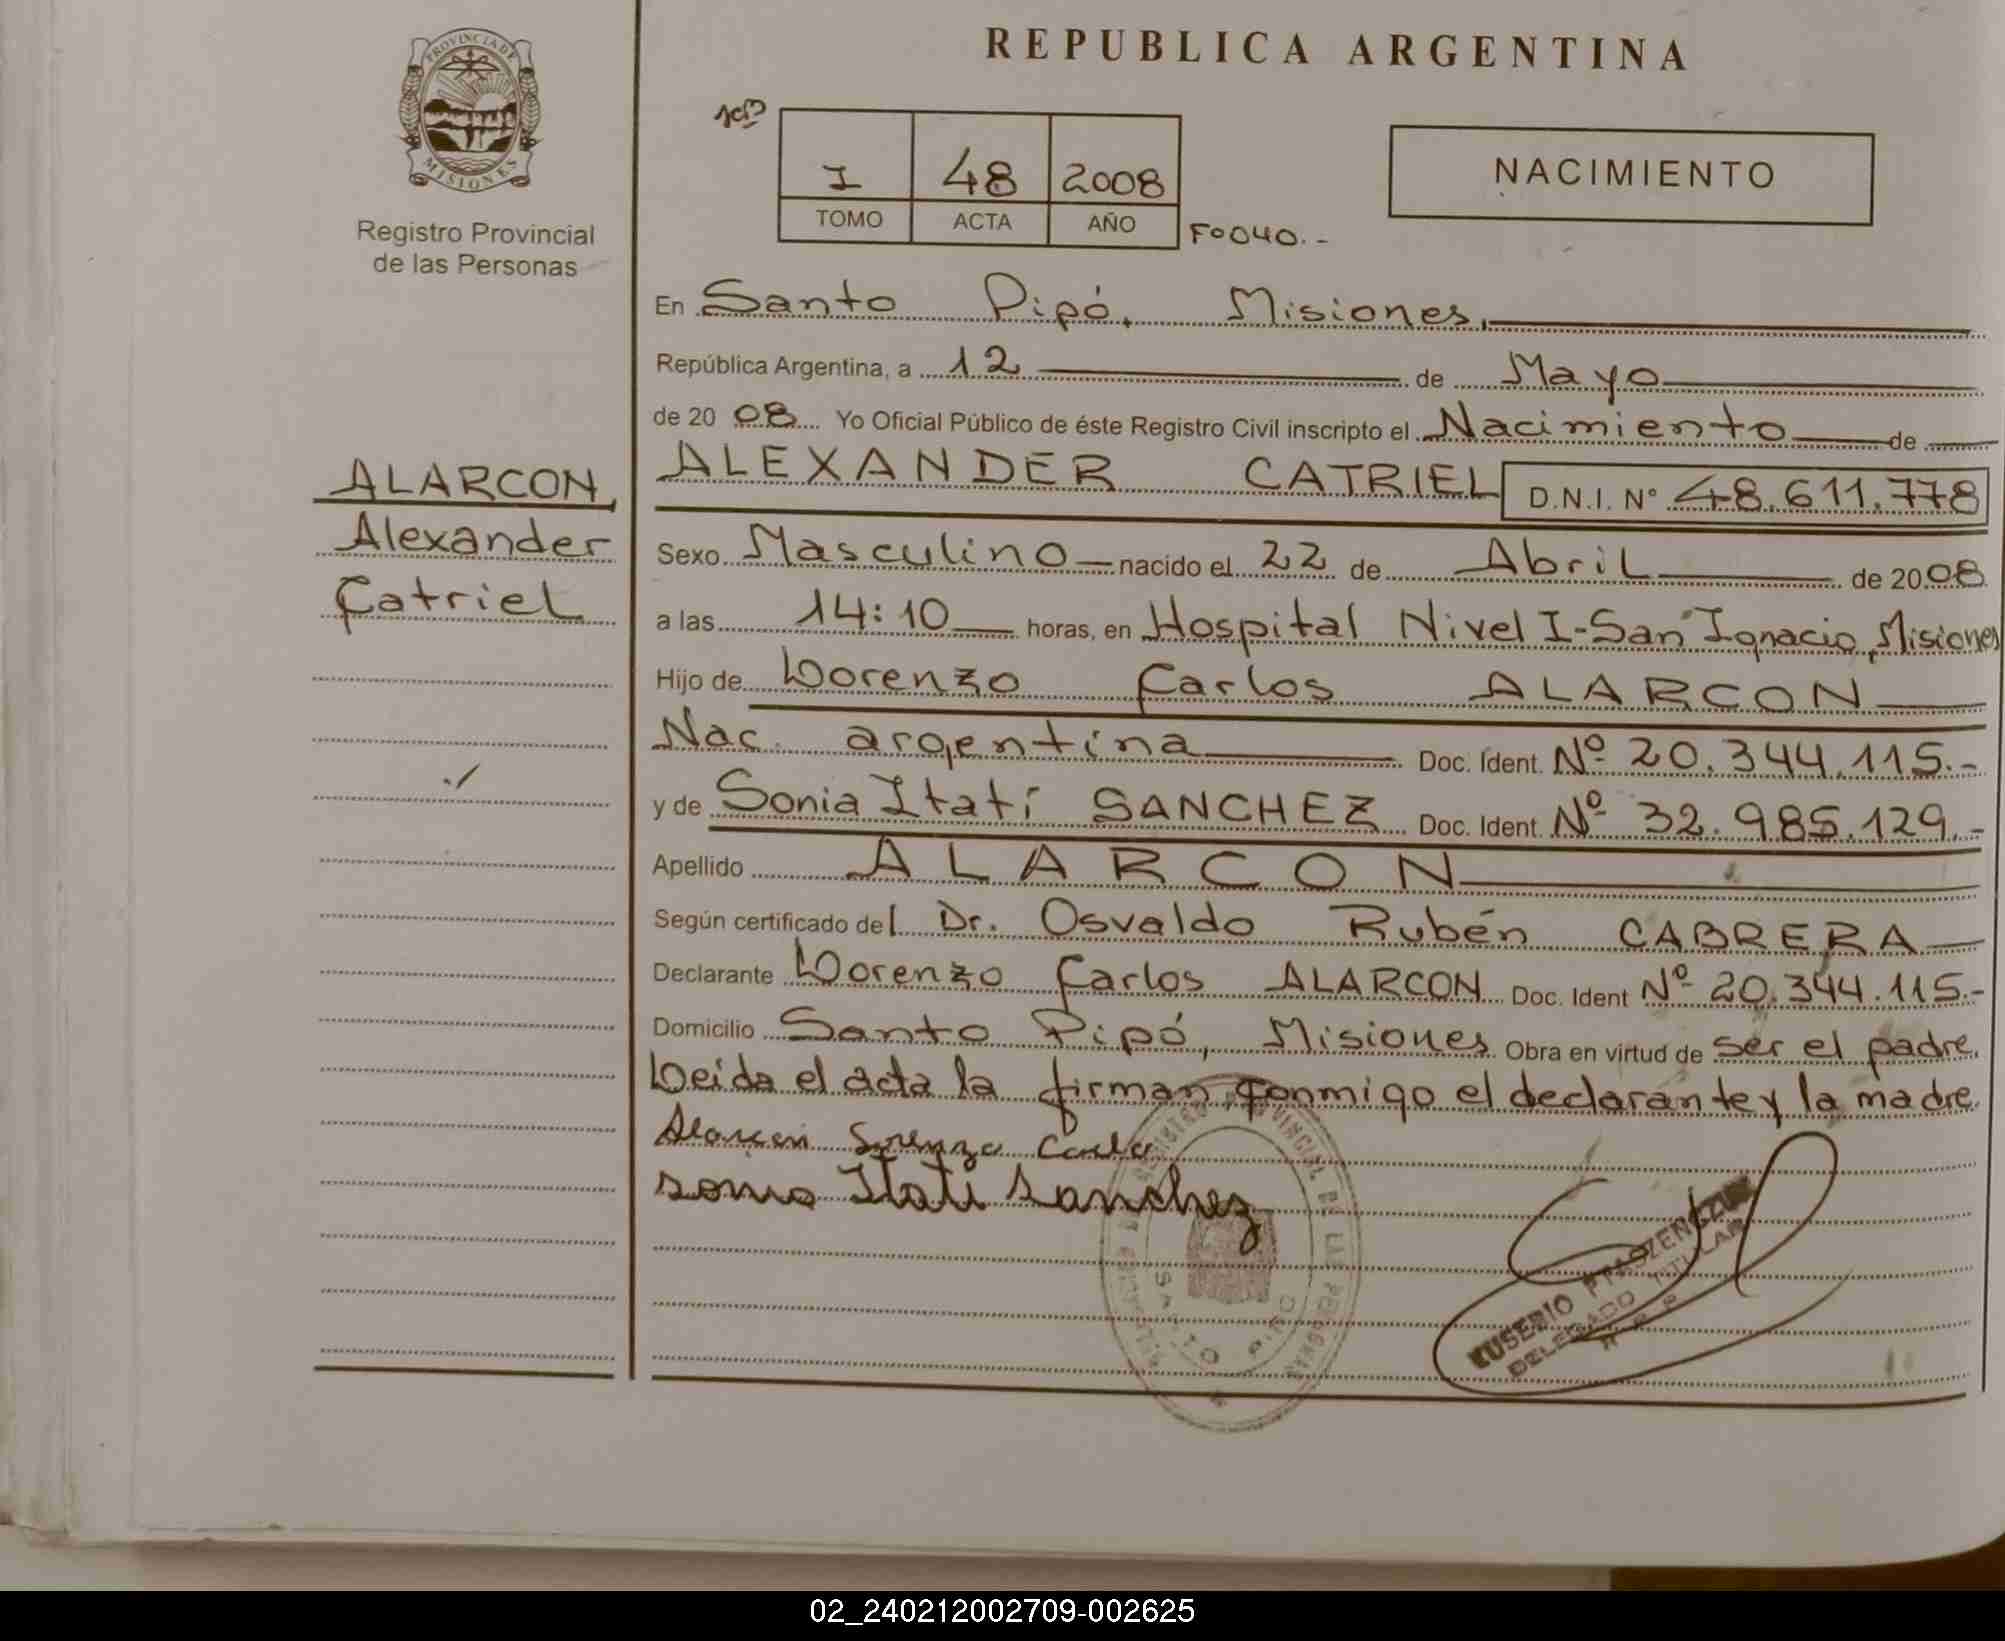 PROVINCIA DE
MISIONES
Registro Provincial
de las Personas
ALARCON,
Alexander
Catriel
REPUBLICA ARGENTINA
I 48 2008
TOMO ACTA AÑO
Fº 040.-
NACIMIENTO
En Santo Pipó, Misiones,
República Argentina, a 12 de Mayo
de 2008 Yo Oficial Público de éste Registro Civil inscripto el Nacimiento de
ALEXANDER CATRIEL D.N.I. Nº 48.611.778
Sexo Masculino nacido el 22 de Abril de 2008
a las 14:10 horas, en Hospital Nivel I-San Ignacio, Misiones
Hijo de Lorenzo Carlos ALARCON
Nac. argentina Doc. Ident. Nº 20.344.115.-
y de Sonia Itatí SANCHEZ Doc. Ident. Nº 32.985.129.-
Apellido ALARCON
Según certificado del Dr. Osvaldo Rubén CABRERA
Declarante Lorenzo Carlos ALARCON Doc. Ident Nº 20.344.115.-
Domicilio Santo Pipó, Misiones Obra en virtud de ser el padre.
Leida el acta la firman conmigo el declarante y la madre.
Alarcon Lorenzo Carlo
Sonia Itati Sanchez
REGISTRO PROVINCIAL DE LAS PERSONAS
SANTO PIPO
EUSEBIO
DELEGADO TITULAR
R P P
02_240212002709-002625